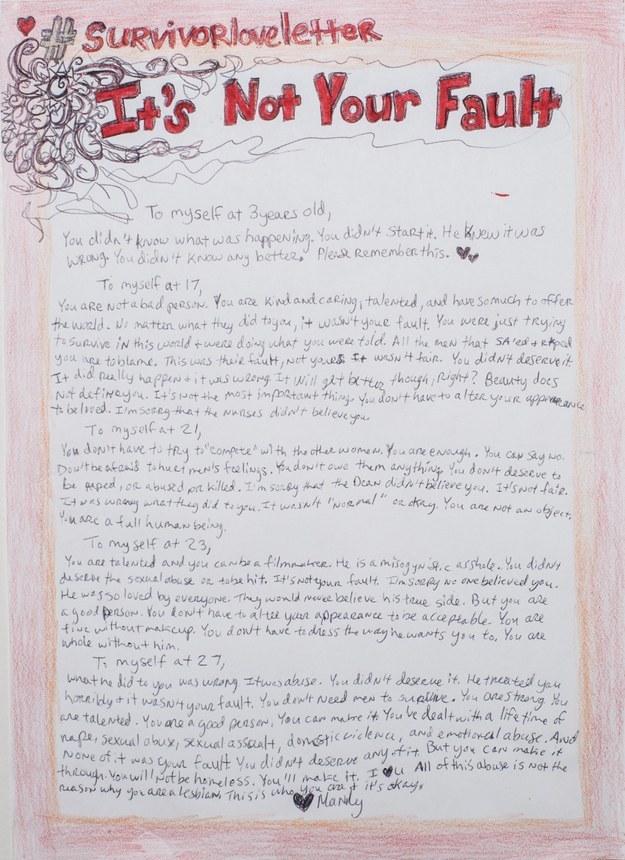 #SURVIVORloveletter
It's Not Your Fault
To myself at 3 years old,
You didn't know what was happening. You didn't start it. He knew it was
wrong. You didn't know any better. Please remember this.
To myself at 17,
You are not a bad person. You are kind and caring, talented, and have so much to offer
the world. No matter what they did to you, it wasn't your fault. You were just trying
to survive in this world + were doing what you were told. All the men that SA'ed + raped
you are to blame. This was their fault, not yours. It wasn't fair. You didn't deserve it.
It did really happen + it was wrong. It will get better though, right? Beauty does
not define you. It's not the most important thing. You don't have to alter your appearance
to be loved. I'm sorry that the nurses didn't believe you.
To myself at 21,
You don't have to try to "compete" with the other women. You are enough. You can say no.
Don't be afraid to hurt men's feelings. You don't owe them anything. You don't deserve to
be raped, or abused or killed. I'm sorry that the Dean didn't believe you. It's not fair.
It was wrong what they did to you. It wasn't "normal" or okay. You are not an object.
You are a full human being.
To myself at 23,
You are talented and you can be a filmmaker. He is a misogynistic asshole. You didn't
deserve the sexual abuse or to be hit. It's not your fault. I'm sorry no one believed you.
He was so loved by everyone. They would never believe his true side. But you are
a good person. You don't have to alter your appearance to be acceptable. You are
fine without makeup. You don't have to dress the way he wants you to. You are
whole without him.
To myself at 27,
What he did to you was wrong. It was abuse. You didn't deserve it. He treated you
horribly + it wasn't your fault. You don't need men to survive. You are strong. You
are talented. You are a good person. You can make it. You've dealt with a lifetime of
rape, sexual abuse, sexual assualt, domestic violence, and emotional abuse. And
none of it was your fault. You didn't deserve any of it. But you can make it
through. You will not be homeless. You'll make it. I ♥ u. All of this abuse is not the
reason why you are a lesbian. This is who you are + it's okay.
♥ Mandy